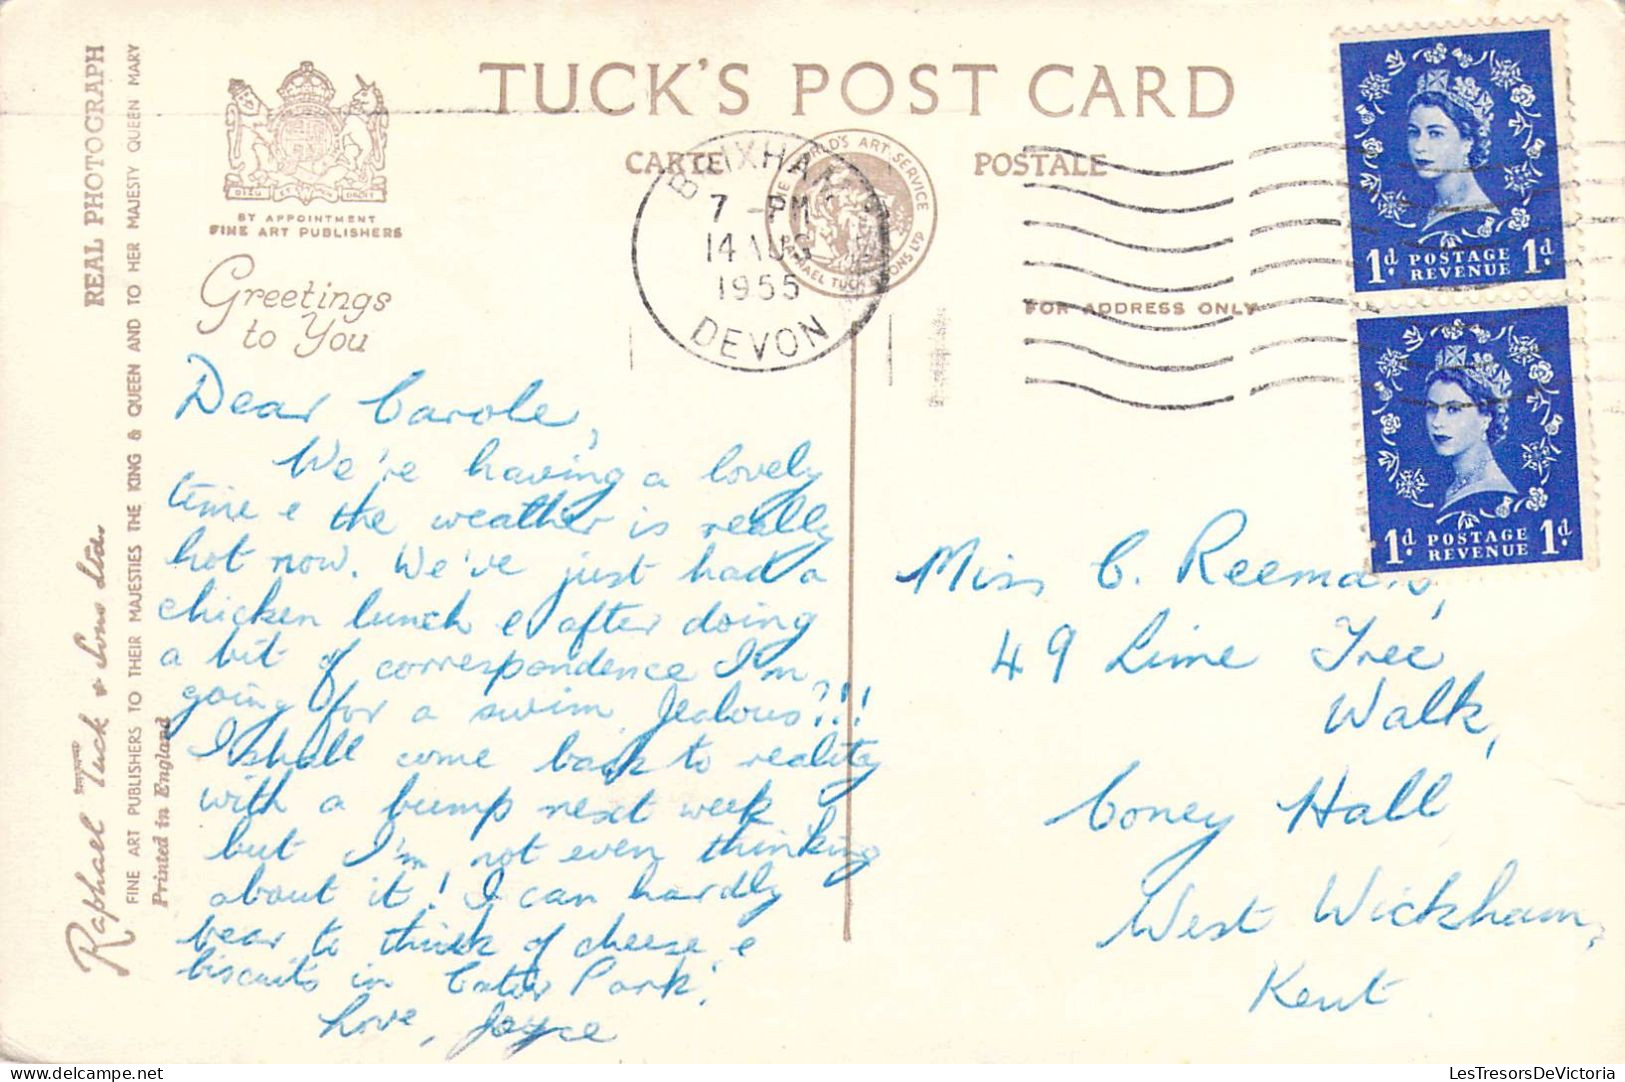 TUCK'S POST CARD
CARTE POSTALE
BY APPOINTMENT
FINE ART PUBLISHERS
Greetings
to You
REAL PHOTOGRAPH
Raphael Tuck & Sons Ltd.
FINE ART PUBLISHERS TO THEIR MAJESTIES THE KING & QUEEN AND TO HER MAJESTY QUEEN MARY
Printed in England
BRIXHAM
7 - PM
14 AUG
1955
DEVON
THE WORLD'S ART SERVICE
RAPHAEL TUCK & SONS LTD
FOR ADDRESS ONLY
1d POSTAGE REVENUE 1d
1d POSTAGE REVENUE 1d
Dear Carole,
We're having a lovely
time & the weather is really
hot now. We've just had a
chicken lunch & after doing
a bit of correspondence I'm
going for a swim. Jealous?!!
I shall come back to reality
with a bump next week
but I'm not even thinking
about it! I can hardly
bear to think of cheese &
biscuits in Cator Park!
Love, Joyce
Miss C. Reeman,
49 Lime Tree
Walk,
Coney Hall
West Wickham,
Kent
LesTresorsDeVictoria